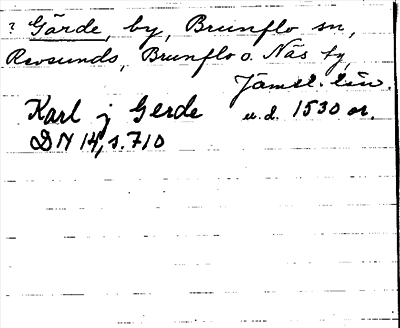 ? Gärde, by, Brunflo sn,
Revsunds, Brunflo o. Näs tg,
Jämtl. län.
Karl j Gerde u.d. 1530 or.
DN 14, s. 710